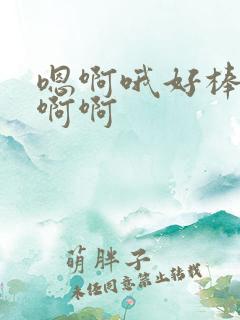 嗯啊哦好棒
啊啊
萌胖子
未经同意禁止转载